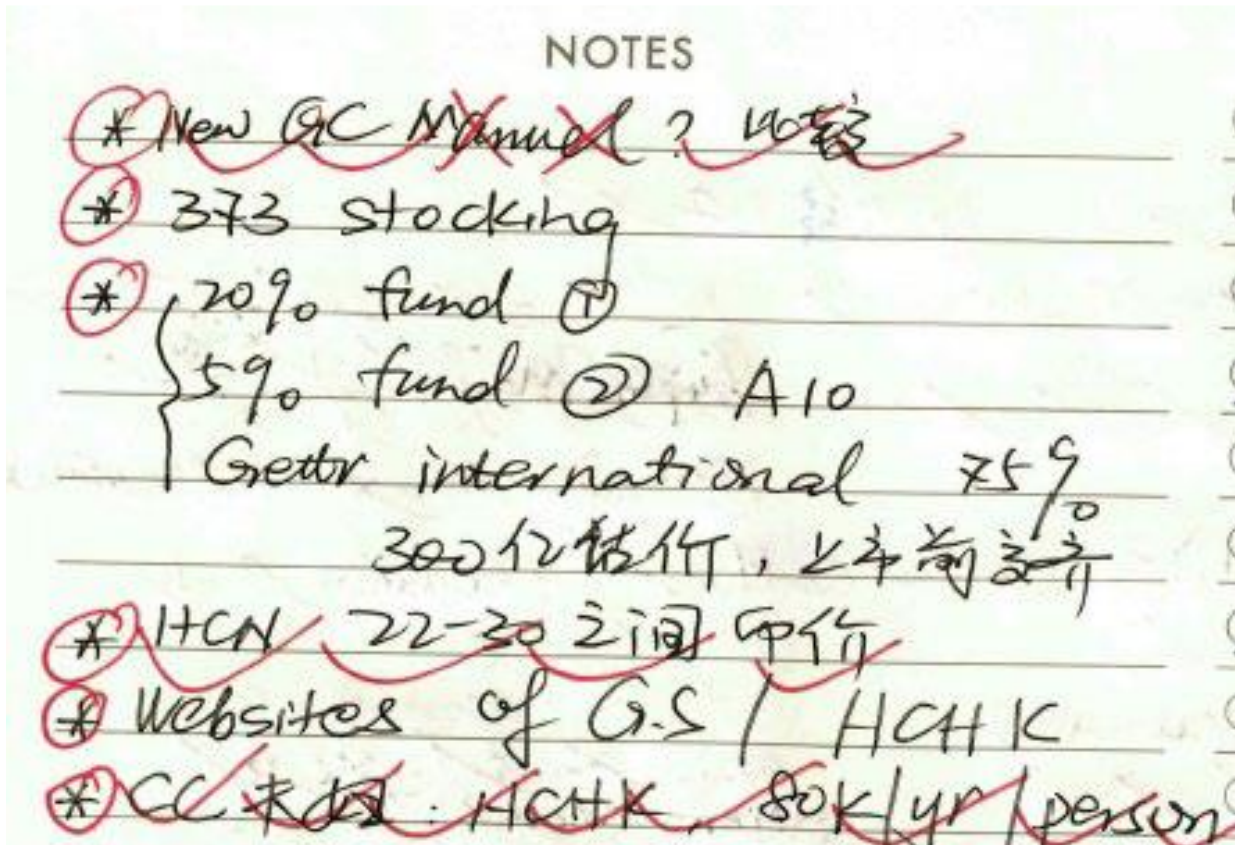 NOTES
* New GC Manuel ?
* 373 stocking
* 20% fund ①
5% fund ② A10
Gettr international 75%
300亿估价,上市前
* HCN 22-30 之间 价
* Websites of G.S / HCHK
* GC : HCHK, 80K/yr/person